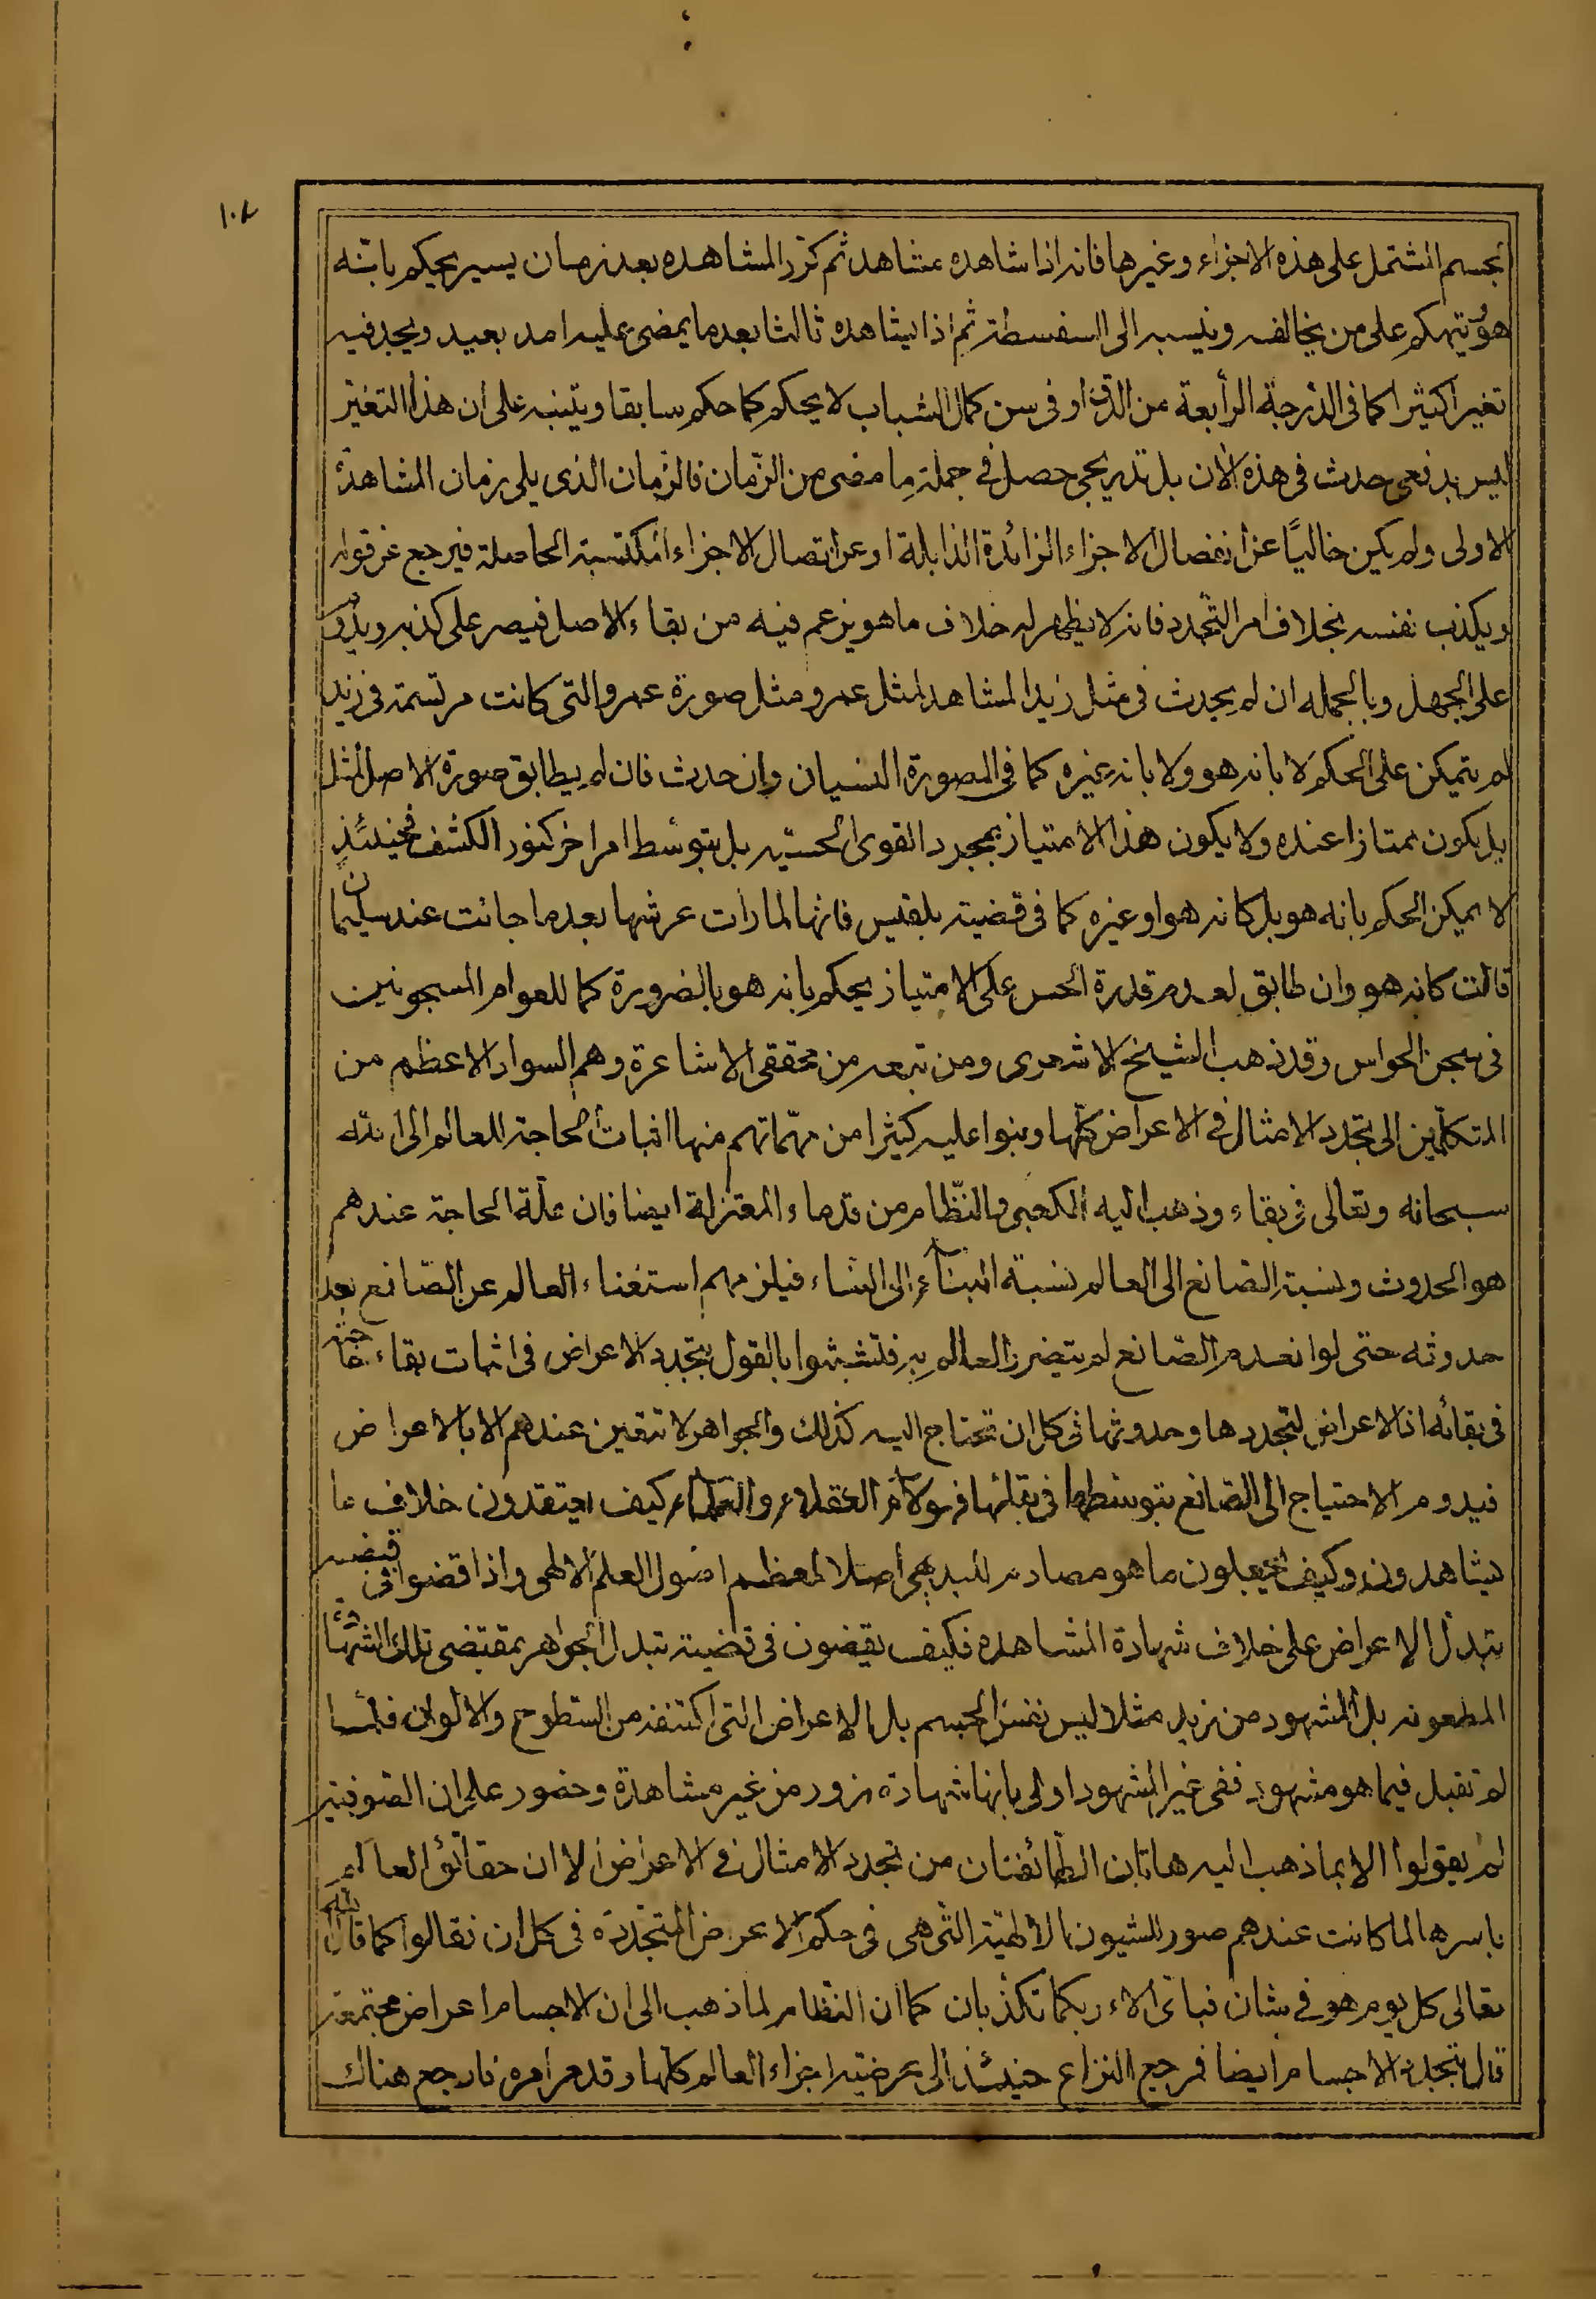 ١٠٨
لجسم المشتمل على هذه الاجزاء وغيرها فانه اذا شاهده مشاهد ثم كرّر المشاهده بعد زمان يسير يحكم بانّه
هو ويتهكم على من يخالفه وينسبه الى السفسطة ثم اذا يشاهده ثالثا بعد ما يمضى عليه امد بعيد ويجد فيه
تغيرا كثيرا كما فى الدّرجة الرابعة من الدّق او فى سن كمال الشباب لا يحكم كما حكم سابقا ويتنبه على ان هذا التغيّر
ليس بدفعى حدث فى هذه الآن بل تدريجى حصل فى جملة ما مضى من الزّمان فالزّمان الذى يلى زمان المشاهدة
الاولى ولم يكن خاليًا عن انفصال الاجزاء الزائدة الذابلة او عن اتصال الاجزاء المكتسبة الحاصلة فيرجع عن قوله
ويكذب نفسه بخلاف امر التّجدد فانه لا يظهر له خلاف ما هو يزعم فيه من بقاء الاصل فيصر على كذبه ويدوم
على الجهل وبالجمله ان لم يحدث فى مثل زيد المشاهد لمثل عمرو مثل صورة عمرو التى كانت مرتسمة فى زيد
لم يتمكن على الحكم لا بانه هو ولا بانه غيره كما فى الصورة النسيان وان حدث فان لم يطابق صورة الاصل المثل
بل يكون ممتازا عنده ولا يكون هذا الامتياز بمجرد القوى الحسّيه بل بتوسط امر اخر كنور الكشف فحينئذٍ
لا يمكن الحكم بانه هو بل كانه هو او غيره كما فى قضية بلقيس فانّها لما رات عرشها بعد ما جائت عند سليمان
قالت كانه هو وان طابق لعدم قدرة الحس على الامتياز يحكم بانه هو بالضرورة كما للعوام المسجونين
فى سجن الحواس وقد ذهب الشيخ الاشعرى ومن تبعه من محققى الاشاعرة وهم السواد الاعظم من
المتكلّمين الى تجدد الامثال فى الاعراض كلّها وبنوا عليه كثيرا من مهمّاتهم منها اثبات الحاجة للعالم الى الله
سبحانه وتعالى فى بقاء وذهب اليه الكعبى والنّظام من قدماء المعتزلة ايضا فان علّة الحاجة عندهم
هو الحدوث ونسبة الصّانع الى العالم نسبة البنّاء الى البناء فيلزمهم استغناء العالم عن الصّانع بعد
حدوثه حتى لو انعدم الصّانع لم يتضرر العالم به فتشبثوا بالقول بتجدد الاعراض فى اثبات بقاء حاجته
فى بقائه اذ الاعراض لتجددها وحدوثها فى كل ان تحتاج اليه كذلك والجواهر لا تتعين عندهم الا بالاعراض
فيدوم الاحتياج الى الصّانع بتوسّطها فى بقائها فهولاء العقلاء والعلماء كيف يعتقدون خلاف ما
يشاهدونه وكيف يجعلون ما هو مصادم للبديهى اصلا لمعظم اصول العلم الالهى واذا قضوا فى قضيه
تبدل الاعراض على خلاف شهادة المشاهده فكيف يقضون فى قضية تبدل الجواهر بمقتضى تلك الشّهادة
المطعونه بل المشهود من زيد مثلا ليس نفس الجسم بل الاعراض التى اكتنفه من السّطوح والالوان فلمّا
لم تقبل فيما هو مشهود ففى غير المشهود اولى بانها شهادة زور من غير مشاهدة وحضور على ان الصّوفية
لم يقولوا الا بما ذهب اليه هاتان الطّائفتان من تجدد الامثال فى الاعراض الا ان حقائق العالم
باسرها لما كانت عندهم صور للشيون الالهيّة التى هى فى حكم الاعراض المتجدّدة فى كل ان فقالوا كما قال الله
تعالى كل يوم هو فى شان فباى الاء ربكما تكذبان كما ان النّظام لما ذهب الى ان الاجسام اعراض مجتمعة
قال بتجدد الاجسام ايضا فرجع النزاع حينئذ الى عرضية اجزاء العالم كلها وقد مر امره فارجع هناك